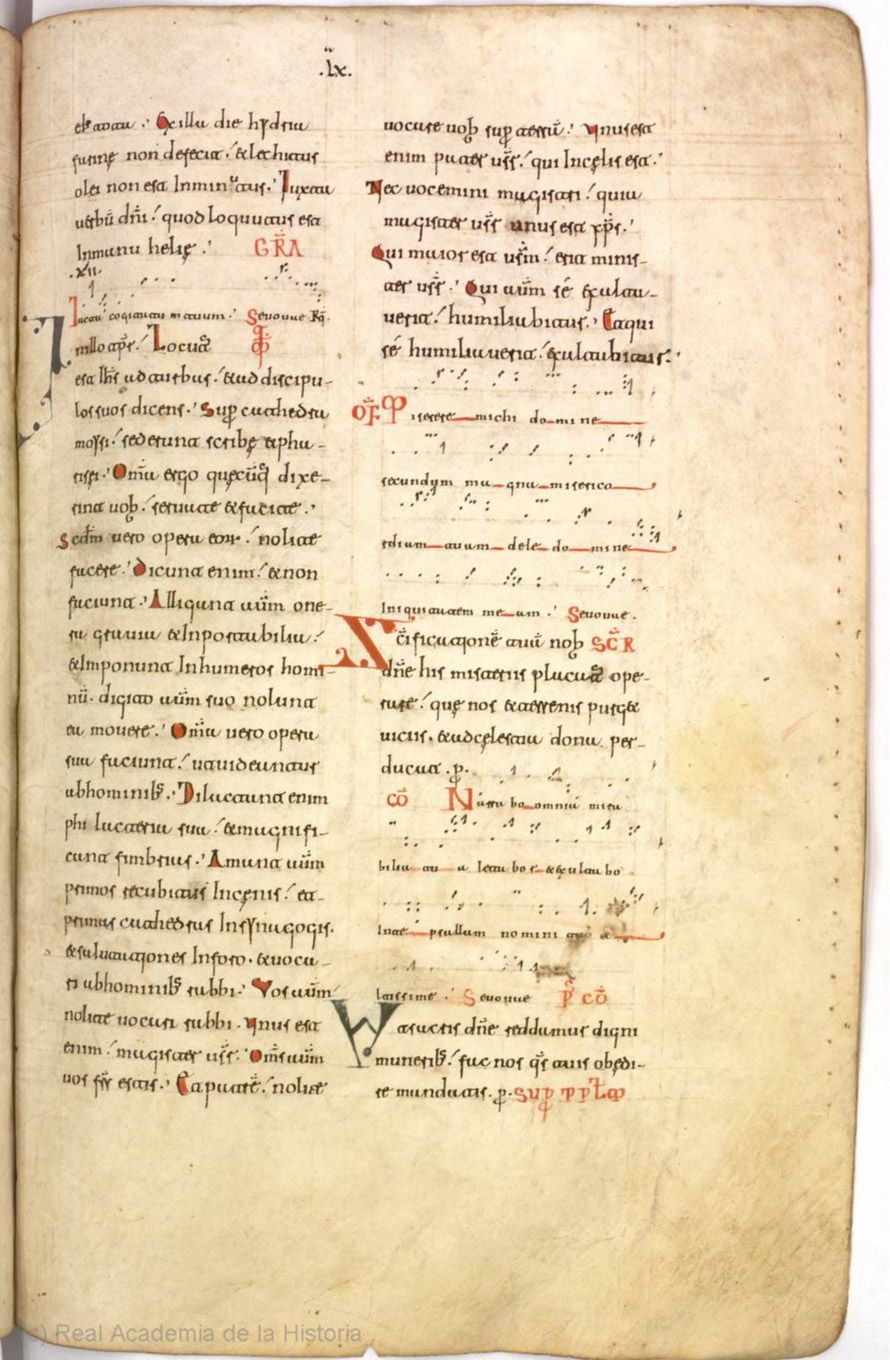 .lx.
Ex illa die hydria
farine non defecit. & lechitus
olei non est Inminutus. Iuxta
uerbũ dñi. quod loquutus est
Inmanu helie. GR̃A
.xii.
Iacta cogitatum tuum. Seuouae R̃q̃.
In illo tp̃r. Locutꝰ
est ihs̃ ad turbas. & ad discipu-
los suos dicens. Sup cathedra
mossi. sederunt scribę & pha-
risei. Omĩa ergo quęcũq̃ dixe-
rint uob. seruate & facite.
Scdm̃ uero opera eor. nolite
facere. Dicunt enim. & non
faciunt. Alligant aũm one-
ra grauia & Inportabilia.
& Imponunt Inhumeros homi-
nũ. digito aũm suo nolunt
ea mouere. Omĩa uero opera
sua faciunt. ut uideantur
abhominib;. Dilatant enim
philacteria sua. & magnifi-
cant fimbrias. Amant aũm
primos recubitus Incenis. et
primas cathedras Insynagogis.
& salutationes Inforo. & uoca-
ri abhominib; rabbi. Vos aũm
nolite uocari rabbi. unus est
enim. magister ur̃s. Om̃s aũm
uos fr̃s estis. Et patrẽ. nolite
uocare uob sup terrã. Vnus est
enim pater ur̃s. qui Incelis est.
Nec uocemini magistri. quia
magister ur̃s unus est xp̃s.
Qui maior est ur̃m. erit minis-
ter ur̃s. Qui aũm sé exalta-
uerit. humiliabitur. Et qui
sé humiliauerit. exaltabitur.
OF̃F Miserere michi domine
secundum magna miserico
rdiam tuam dele domine
Iniquitatem meam. Seuouae.
Sc̃ificationẽ tuã nob SC̃R
dñe his misteriis placatꝰ ope-
rare. que nos & aterrenis purg&
uiciis. & ad cęlestia dona per-
ducat. p.
cõ Narrabo omnia mira
bilia tua letabor & exultabo
Inte psallam nomini tuo al
tissime. Seuouae p̃ cõ
munerib;. fac nos q̃s tuis obędi-
re mandatis. p. Sup ppl̃m